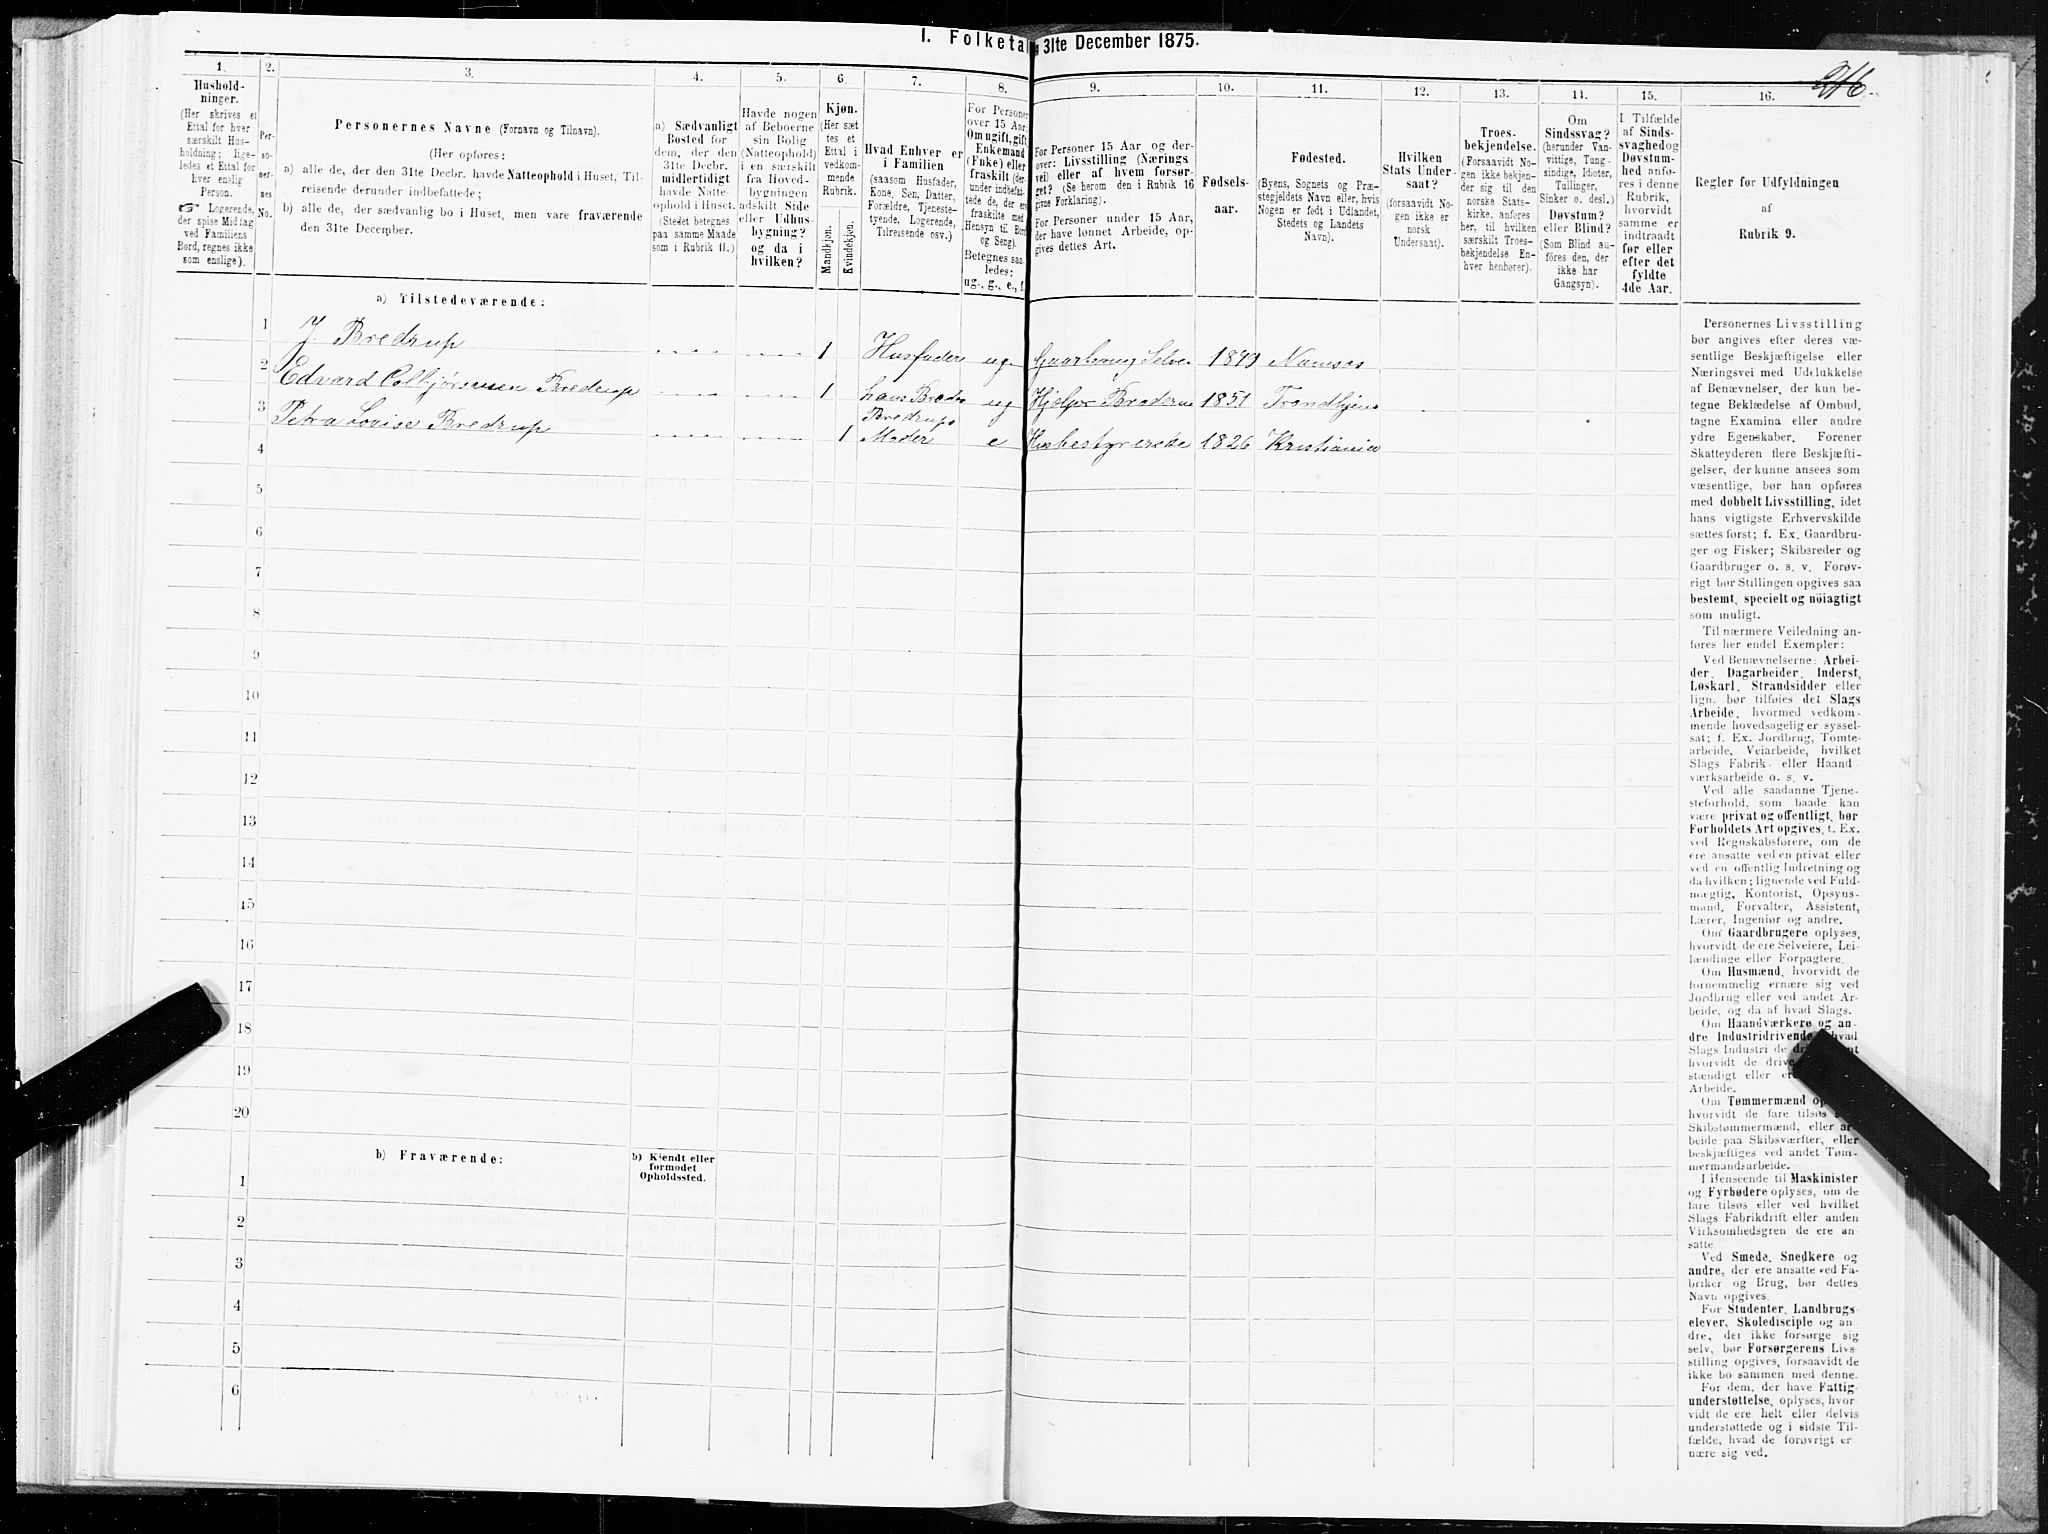 I. Folketa 31te December 1875.
216
1. 2. 3. 4. 5. 6. 7. 8. 9. 10. 11. 12. 13. 14. 15. 16.
Hushold-
ninger.
(Her skrives et
Ettal for hver
særskilt Hus-
holdning; lige-
ledes et Ettal for
hver enslig
Person.
☞ Logerende,
der spise Middag
ved Familiens
Bord, regnes ikke
som enslige).
Per-
so-
ner-
nes
No.
Personernes Navne (Fornavn og Tilnavn).
(Her opføres:
a) alle de, der den 31te Decbr. havde Natteophold i Huset, Til-
reisende derunder indbefattede;
b) alle de, der sædvanlig bo i Huset, men vare fraværende
den 31te December.
a) Sædvanligt
Bosted for
dem, der den
31te Decbr.
midlertidigt
havde Natte-
ophold i Huset.
(Stedet betegnes
paa samme Maade
som i Rubrik 11.)
Havde nogen
af Beboerne
sin Bolig
(Natteophold)
i en særskilt
fra Hoved-
bygningen
adskilt Side
eller Udhus-
bygning?
og da i
hvilken?
Kjøn.
(Her sæt
tes et
Ettal i
vedkom-
mende
Rubrik.
Mandkjøn.
Kvindekjøn.
Hvad Enhver er
i Familien
(saasom Husfader,
Kone, Søn, Datter,
Forældre, Tjeneste-
tyende, Logerende,
Tilreisende osv.)
For Personer
over 15 Aar:
Om ugift, gift,
Enkemand
(Enke) eller
fraskilt (der-
under indbefat-
tede de, der ere
fraskilte med
Hensyn til Bord
og Seng).
Betegnes saa-
ledes:
ug., g., e., f.
For Personer 15 Aar og der-
over: Livsstilling (Nærings
vei) eller af hvem forsør-
get? (Se herom den i Rubrik 16
givne Forklaring).
For Personer under 15 Aar,
der have lønnet Arbeide, op-
gives dettes Art.
Fødsels-
aar.
Fødested.
(Byens, Sognets og Præ-
stegjeldets Navn eller, hvis
Nogen er født i Udlandet,
Stedets og Landets
Navn).
Hvilken
Stats Under-
saat?
(forsaavidt No-
gen ikke er
norsk
Undersaat).
Troes-
bekjendelse.
(Forsaavidt No-
gen ikke bekjen-
der sig til den
norske Stats-
kirke, anføres
her, til hvilken
særskilt Troes-
bekjendelse En-
hver henhører).
Om
Sindssvag?
(herunder Van-
vittige, Tung-
sindige, Idioter,
Tullinger,
Sinker o. desl.)
Døvstum?
eller Blind?
(Som Blind an-
føres den, der
ikke har
Gangsyn).
I Tilfælde
af Sinds-
svaghed og
Døvstum-
hed anfø-
res i denne
Rubrik,
hvorvidt
samme er
indtraadt
før eller
efter det
fyldte
4de Aar.
Regler for Udfyldningen
af
Rubrik 9.
a) Tilstedeværende:
1 J. Bredrup 1 Husfader ug. Gaarbrug Selve. 1849 Namsos
2 Edvard Colbjørnsen Bredrup 1 hans Broder ug Hjelper Broderen 1851 Trondhjem
Bredrups
3 Petra Louise Bredrup 1 Moder e Husbestyrerske 1826 Kristiania
4
5
6
7
8
9
10
11
12
13
14
15
16
17
18
19
20
b) Fraværende:
b) Kjendt eller
formodet
Opholdssted.
1
2
3
4
5
6
Personernes Livsstilling
bør angives efter deres væ-
sentlige Beskjæftigelse eller
Næringsvei med Udelukkelse
af Benævnelser, der kun be-
tegne Beklædelse af Ombud,
tagne Examina eller andre
ydre Egenskaber. Forener
Skatteyderen flere Beskjæfti-
gelser, der kunne ansees som
væsentlige, bør han opføres
med dobbelt Livsstilling, idet
hans vigtigste Erhvervskilde
sættes først; f. Ex. Gaardbru-
ger og Fisker; Skibsreder og
Gaardbruger o. s. v. Forøv-
rigt bør Stillingen opgives saa
bestemt, specielt og nøiagtigt
som muligt.
Til nærmere Veiledning an-
føres her endel Exempler:
Ved Benævnelserne: Arbei-
der, Dagarbeider, Inderst,
Løskarl, Strandsidder eller
lign. bør tilføies det Slags
Arbeide, hvormed vedkom-
mende hovedsagelig er syssel-
sat; f. Ex. Jordbrug, Tomte-
arbeide, Veiarbeide, hvilket
Slags Fabrik- eller Haand
værksarbeide o. s. v.
Ved alle saadanne Tjene-
steforhold, som baade kan
være privat og offentligt, bør
Forholdets Art opgives, t. Ex.
ved Regnskabsførere, om de
ere ansatte ved en privat eller
ved en offentlig Indretning og
da hvilken; lignende ved Fuld-
mægtig, Kontorist, Opsyns-
mand, Forvalter, Assistent,
Lærer, Ingeniør og andre.
Om Gaardbrugere oplyses,
hvorvidt de ere Selveiere, Lei-
lændinge eller Forpagtere.
Om Husmænd, hvorvidt de
fornemmelig ernære sig ved
Jordbrug eller ved andet Ar-
beide, og da af hvad Slags.
Om Haandværkere og an-
dre Industridrivende hvad
Slags Industri de dri
hvorvidt de drive
stændigt eller er
Arbeide.
Om Tømmermænd op
hvorvidt de fare tilsøs
Skibstømmermænd, eller ar
beide paa Skibsværfter, eller
beskjæftiges ved andet Tøm-
mermandsarbeide.
I Henseende til Maskinister
og Fyrbødere oplyses, om de
fare tilsøs eller ved hvilket
Slags Fabrikdrift eller anden
Virksomhedsgren de ere an-
satte
Ved Smede, Snedkere og
andre, der ere ansatte ved Fa-
briker og Brug, bør dettes
Navn opgives.
For Studenter, Landbrugs-
elever, Skoledisciple og an-
dre, der ikke forsørge sig
selv, bør Forsørgerens Livs-
stilling opgives, forsaavidt de
ikke bo sammen med denne.
For dem, der have Fattig-
understøttelse, oplyses, hvor-
vidt de ere helt eller delvis
understøttede og i sidste Til-
fælde, hvad de forøvrigt er
nære sig ved.